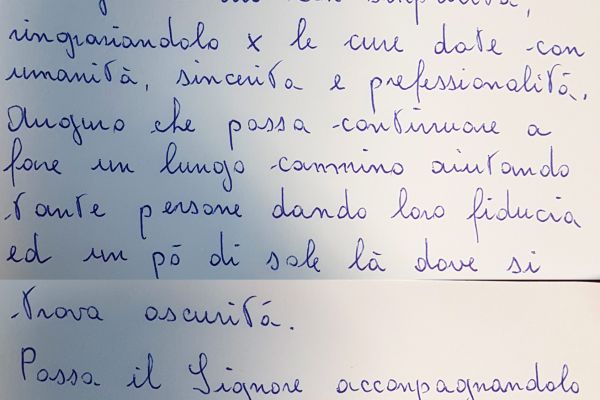 simpatia,
ringraziandolo x le cure date con
umanità, sincerità e prefessionalità.
Auguro che possa continuare a
fare un lungo cammino aiutando
tante persone dando loro fiducia
ed un pò di sole là dove si
trova oscurità.
Possa il Signore acconpagnandolo